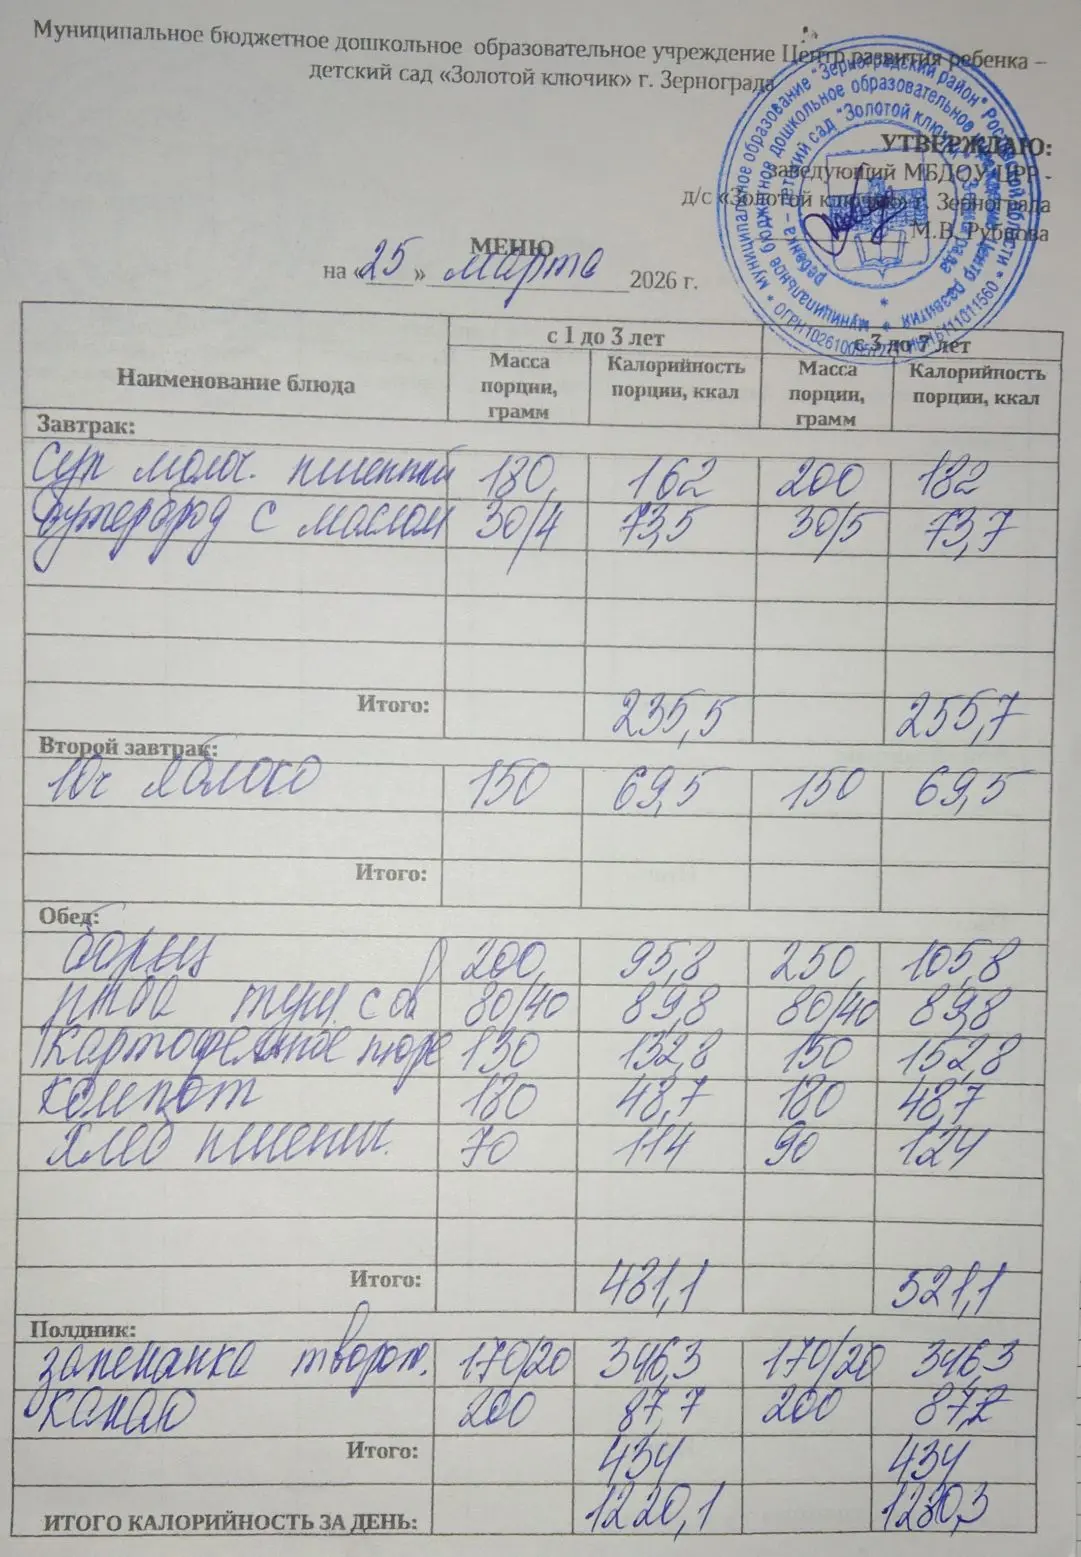 Муниципальное бюджетное дошкольное образовательное учреждение Центр развития ребенка –
детский сад «Золотой ключик» г. Зернограда
УТВЕРЖДАЮ:
заведующий МБДОУ ЦРР -
д/с «Золотой ключик» г. Зернограда
М.В. Рубцова
МЕНЮ
на «25» марта 2026 г.
Наименование блюда с 1 до 3 лет с 3 до 7 лет
Масса порции, грамм Калорийность порции, ккал Масса порции, грамм Калорийность порции, ккал
Завтрак:
Суп молоч. пшенный 180 162 200 182
Бутерброд с маслом 30/4 73,5 30/5 73,7
Итого: 235,5 255,7
Второй завтрак:
10ч яблоко 150 69,5 150 69,5
Итого:
Обед:
борщ 200 95,8 250 105,8
птица туш. с ов 80/40 89,8 80/40 89,8
Картофельное пюре 130 132,8 150 152,8
компот 180 48,7 180 48,7
Хлеб пшенич. 70 114 90 124
Итого: 481,1 521,1
Полдник:
запеканка творож. 170/20 346,3 170/20 346,3
какао 200 87,7 200 87,7
Итого: 434 434
ИТОГО КАЛОРИЙНОСТЬ ЗА ДЕНЬ: 1220,1 1280,3